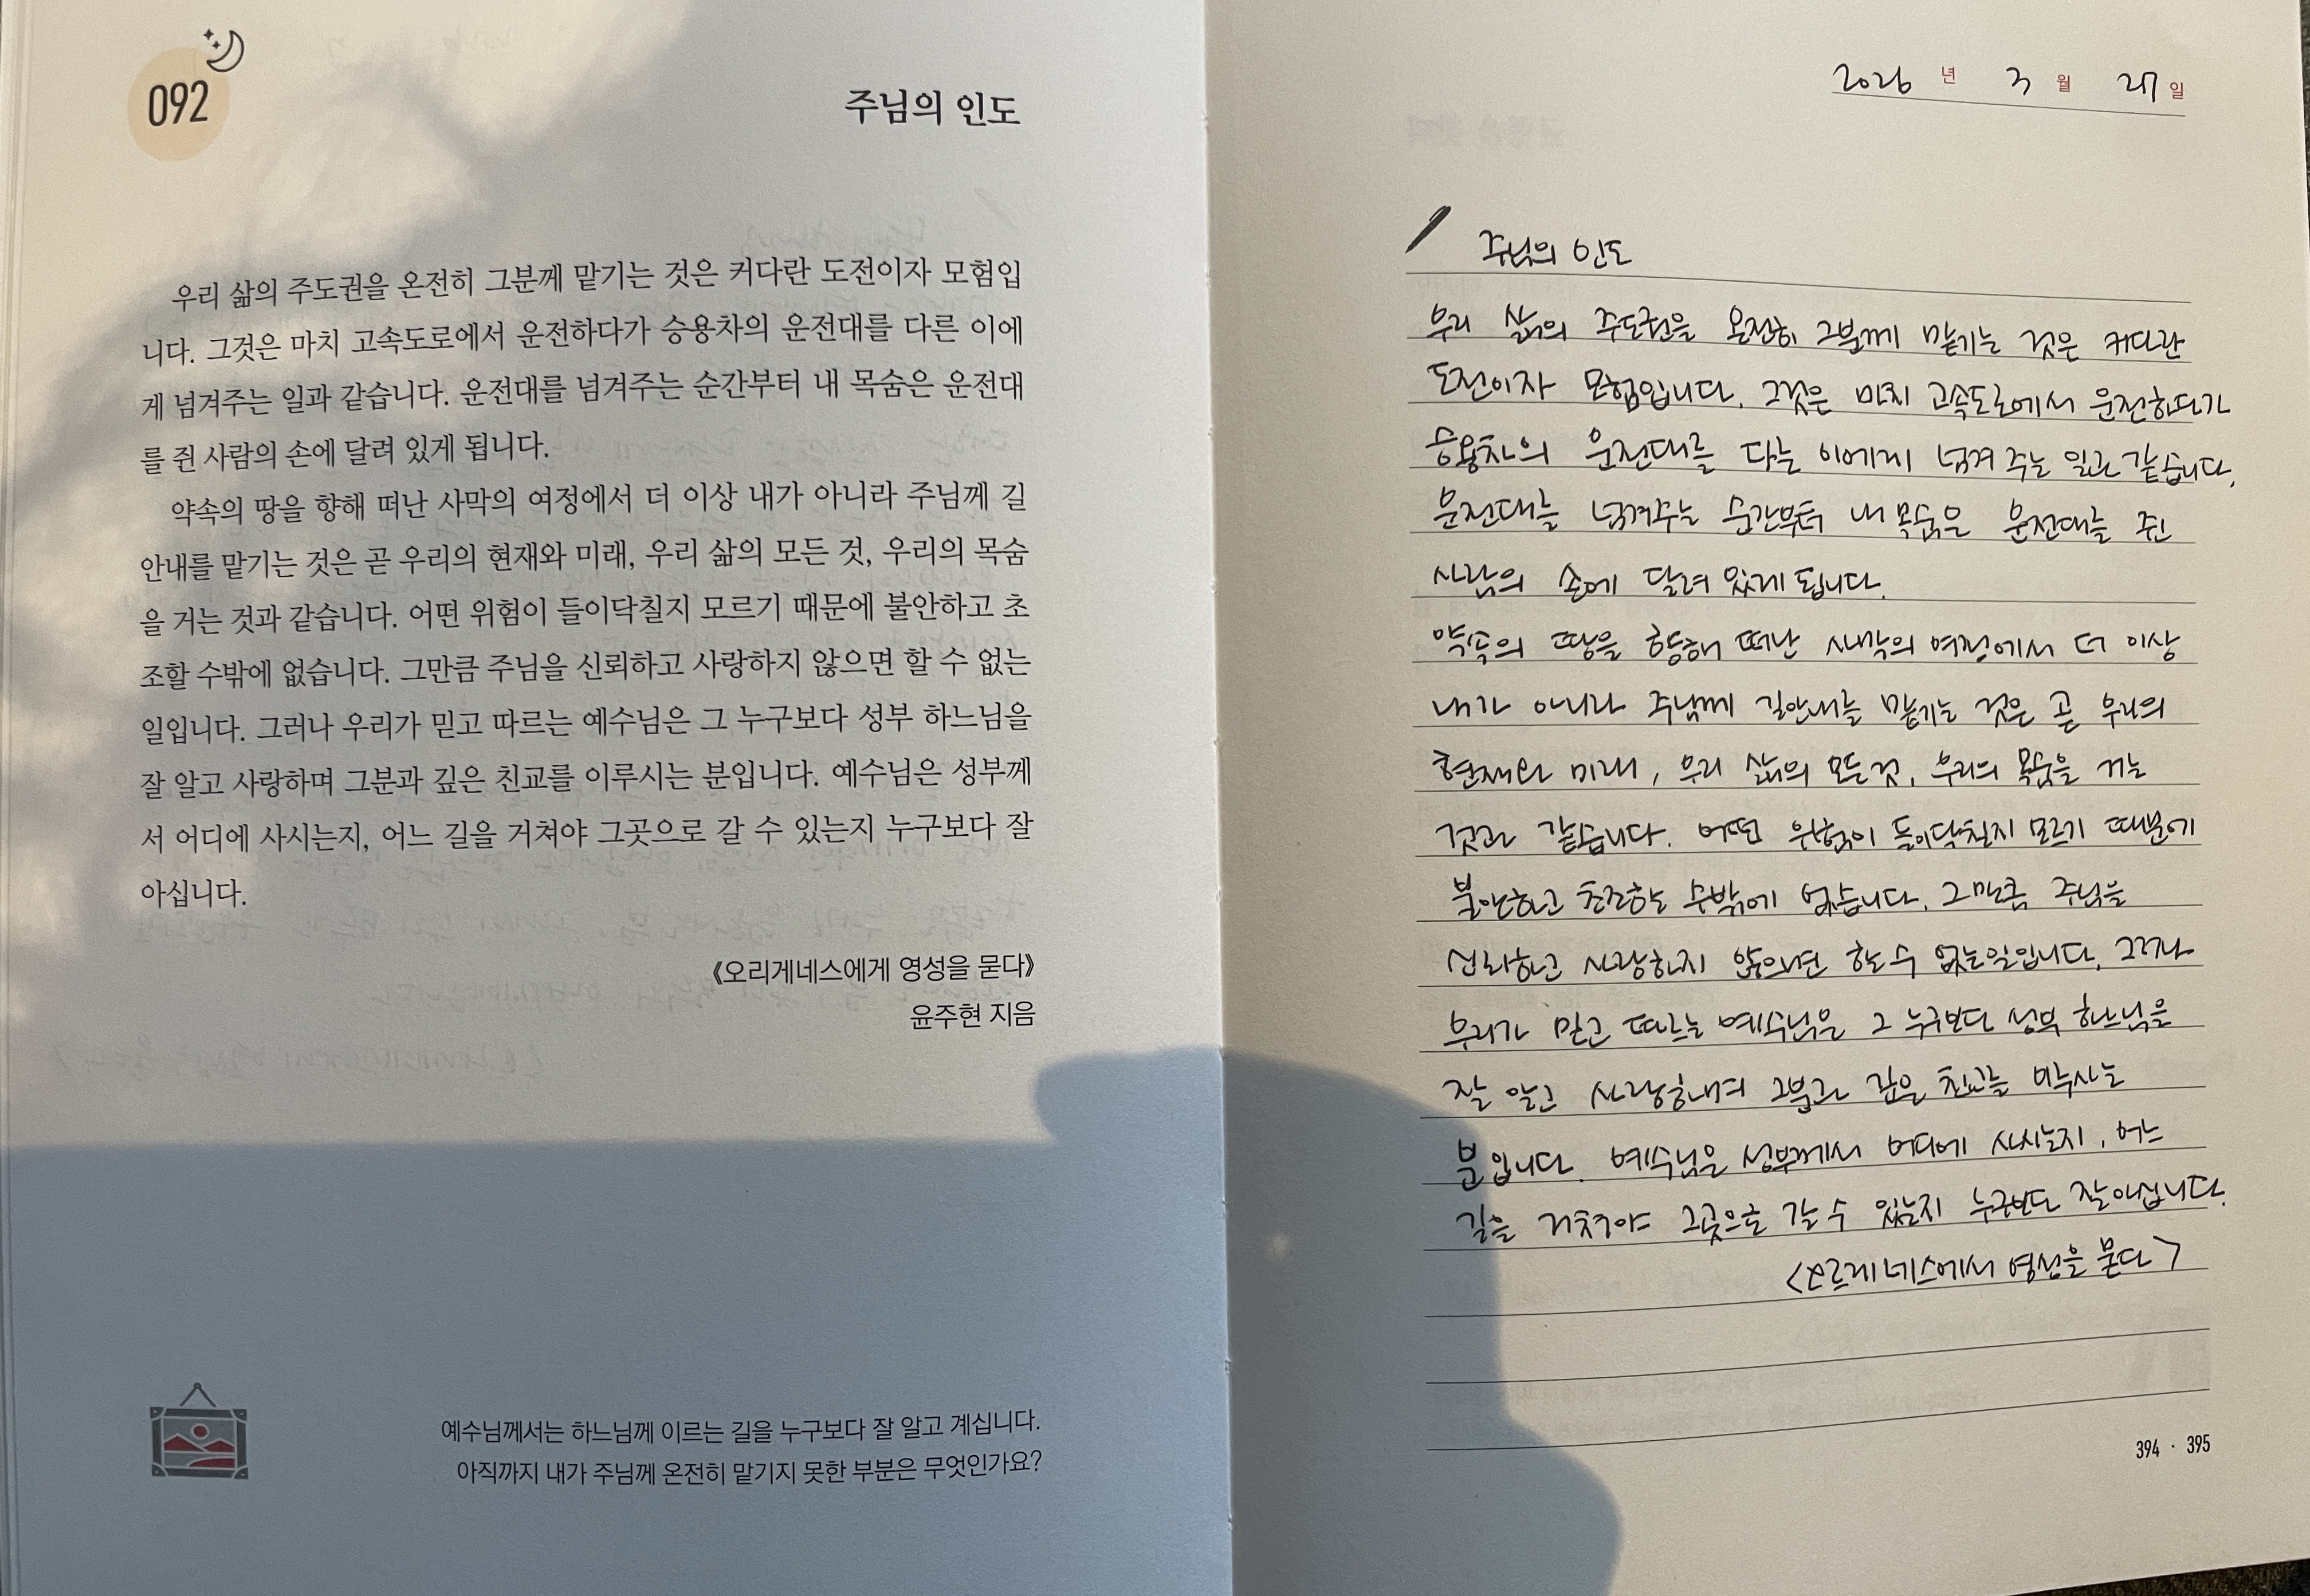 092
주님의 인도
우리 삶의 주도권을 온전히 그분께 맡기는 것은 커다란 도전이자 모험입
니다. 그것은 마치 고속도로에서 운전하다가 승용차의 운전대를 다른 이에
게 넘겨주는 일과 같습니다. 운전대를 넘겨주는 순간부터 내 목숨은 운전대
를 쥔 사람의 손에 달려 있게 됩니다.
약속의 땅을 향해 떠난 사막의 여정에서 더 이상 내가 아니라 주님께 길
안내를 맡기는 것은 곧 우리의 현재와 미래, 우리 삶의 모든 것, 우리의 목숨
을 거는 것과 같습니다. 어떤 위험이 들이닥칠지 모르기 때문에 불안하고 초
조할 수밖에 없습니다. 그만큼 주님을 신뢰하고 사랑하지 않으면 할 수 없는
일입니다. 그러나 우리가 믿고 따르는 예수님은 그 누구보다 성부 하느님을
잘 알고 사랑하며 그분과 깊은 친교를 이루시는 분입니다. 예수님은 성부께
서 어디에 사시는지, 어느 길을 거쳐야 그곳으로 갈 수 있는지 누구보다 잘
아십니다.
《오리게네스에게 영성을 묻다》
윤주현 지음
예수님께서는 하느님께 이르는 길을 누구보다 잘 알고 계십니다.
아직까지 내가 주님께 온전히 맡기지 못한 부분은 무엇인가요?
2026 년 3 월 27 일
주님의 인도
우리 삶의 주도권을 온전히 그분께 맡기는 것은 커다란
도전이자 모험입니다. 그것은 마치 고속도로에서 운전하다가
승용차의 운전대를 다른 이에게 넘겨 주는 일과 같습니다.
운전대를 넘겨주는 순간부터 내 목숨은 운전대를 쥔
사람의 손에 달려 있게 됩니다.
약속의 땅을 향해 떠난 사막의 여정에서 더 이상
내가 아니라 주님께 길안내를 맡기는 것은 곧 우리의
현재와 미래, 우리 삶의 모든 것, 우리의 목숨을 거는
것과 같습니다. 어떤 위험이 들이닥칠지 모르기 때문에
불안하고 초조할 수밖에 없습니다. 그만큼 주님을
신뢰하고 사랑하지 않으면 할 수 없는 일입니다. 그러나
우리가 믿고 따르는 예수님은 그 누구보다 성부 하느님을
잘 알고 사랑하며 그분과 깊은 친교를 이루시는
분입니다. 예수님은 성부께서 어디에 사시는지, 어느
길을 거쳐야 그곳으로 갈 수 있는지 누구보다 잘 아십니다.
<오르게네스에서 영성을 묻다>
394 · 395